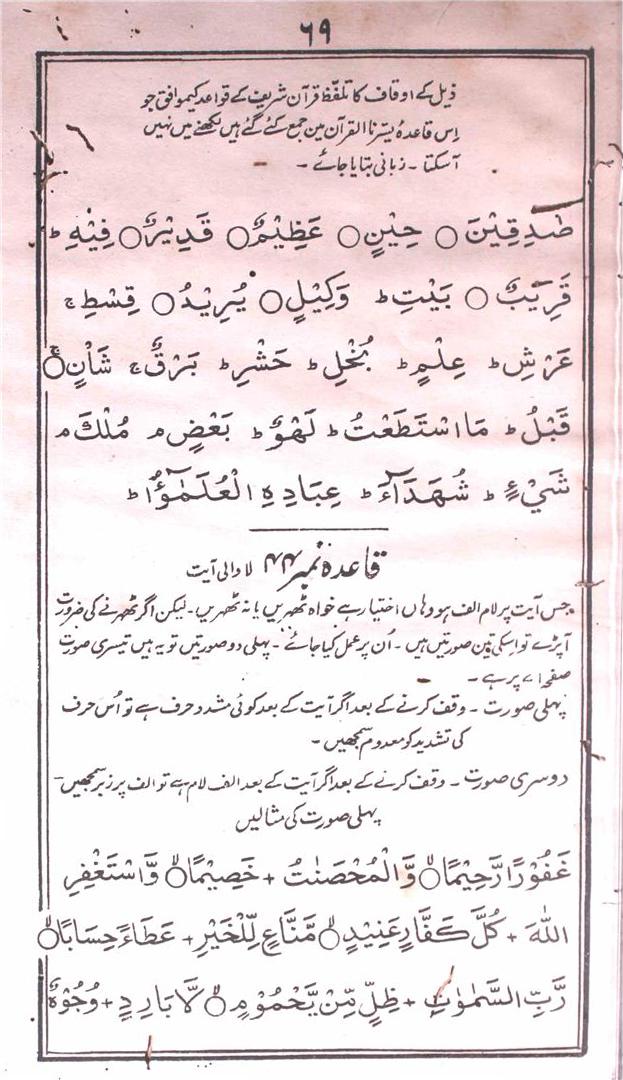 ۶۹
ذیل کے اوقاف کا تلفظ قرآن شریف کے قواعد کیموافق جو
اِس قاعدہ یسّرنا القرآن میں جمع کئے گئے ہیں لکھنے میں نہیں
آسکتا ۔ زبانی بتایا جائے ۔
صٰدِقِيْنَ ○ حِيْنٍ ○ عَظِيْمٌ ○ قَدِيْرٌ ○ فِيْهِ ؕ
قَرِيْبٌ ○ بَيْتِ ؕ وَكِيْلٍ ○ يُرِيْدُ ○ قِسْطِ ۚ
عَرْشِ ؕ عِلْمٍ ؕ بُخْلِ ؕ حَشْرِ ؕ بَرْقٌ ۚ شَاْنٍ ○ۚ
قَبْلُ ؕ مَا اسْتَطَعْتُ ؕ لَهْوٌ ؕ بَعْضٍ ۘ مُلْكَ ۘ
شَيْءٍ ؕ شُهَدَآءَ ؕ عِبَادِهِ الْعُلَمٰٓؤُا ؕ
قاعدہ نمبر ۴۴ لا والی آیت
جس آیت پر لام الف ہو وہاں اختیار ہے خواہ ٹھہریں یا نہ ٹھہریں ۔ لیکن اگر ٹھہرنے کی ضرورت
آپڑے تو اسکی تین صورتیں ہیں ۔ اُن پر عمل کیا جائے ۔ پہلی دو صورتیں تو یہ ہیں تیسری صورت
صفحہ ۷۱ پر ہے ۔
پہلی صورت ۔ وقف کرنے کے بعد اگر آیت کے بعد کوئی مشدد حرف ہے تو اُس حرف
کی تشدید کو معدوم سمجھیں ۔
دوسری صورت ۔ وقف کرنے کے بعد اگر آیت کے بعد الف لام ہے تو الف پر زبر سمجھیں ۔
پہلی صورت کی مثالیں
غَفُوْرًا رَّحِيْمًا ○ۙ وَّالْمُحْصَنٰتُ + خَصِيْمًا ○ۙ وَّاسْتَغْفِرِ
اللّٰهَ + كُلَّ كَفَّارٍ عَنِيْدٍ ○ۙ مَّنَّاعٍ لِّلْخَيْرِ + عَطَآءً حِسَابًا ○ۙ
رَّبِّ السَّمٰوٰتِ + ظِلٍّ مِّنْ يَّحْمُوْمٍ ○ۙ لَّا بَارِدٍ + وُجُوْهٌ